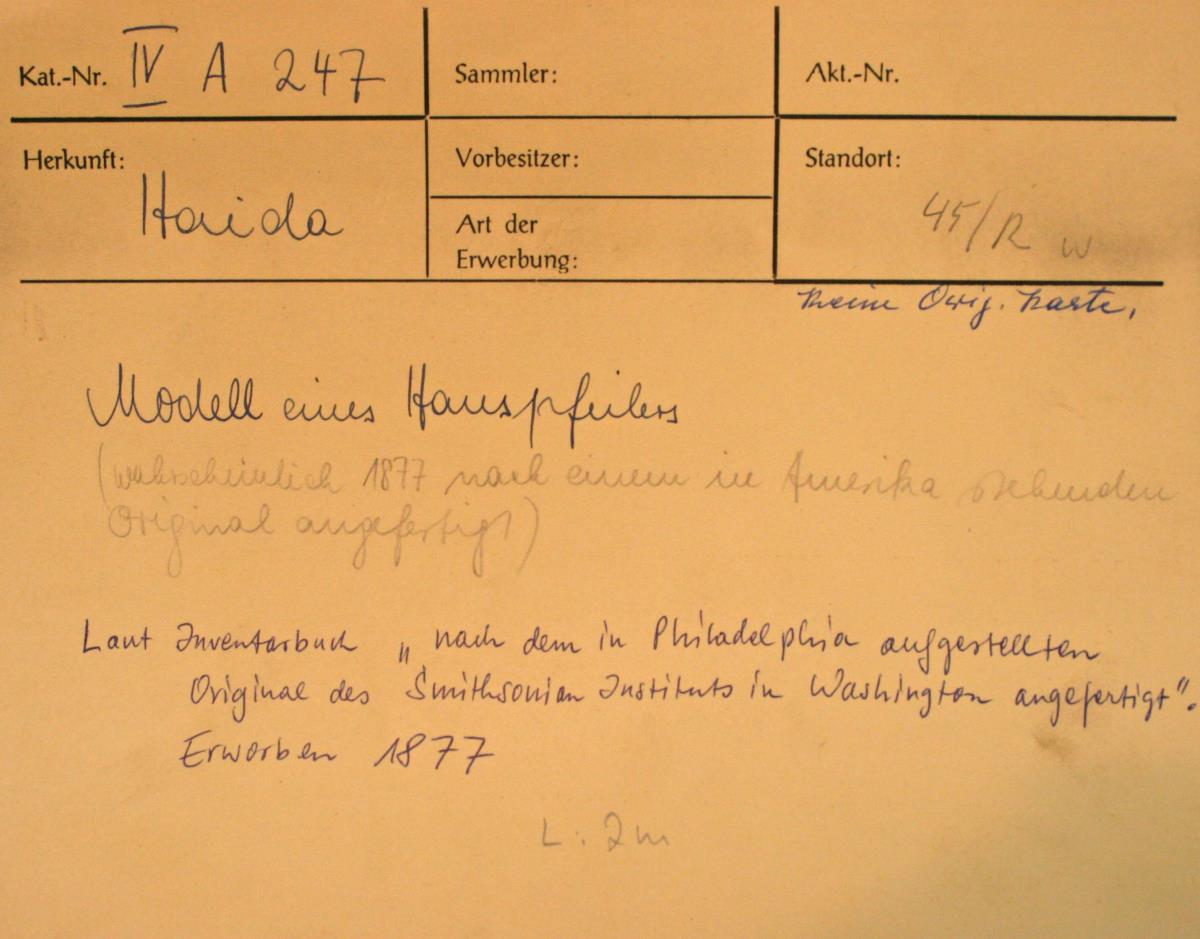 Kat.-Nr. IV A 247
Sammler:
Akt.-Nr.
Herkunft:
Haida
Vorbesitzer:
Art der
Erwerbung:
Standort:
45/R w
keine Orig. Karte.
Modell eines Hauspfeilers
(wahrscheinlich 1877 nach einem in Amerika stehenden
Original angefertigt)
Laut Inventarbuch „nach dem in Philadelphia aufgestellten
Original des Smithsonian Instituts in Washington angefertigt".
Erworben 1877
L: 2m